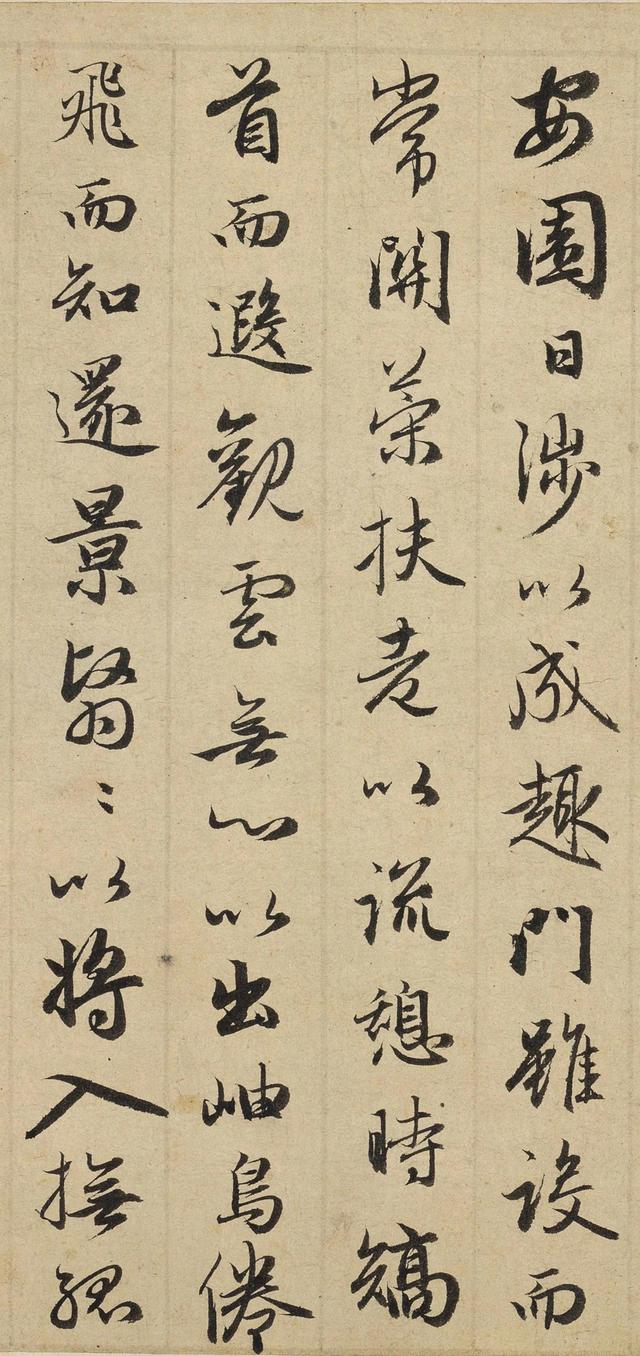 安園日涉以成趣門雖設而
常關策扶老以流憩時矯
首而遐觀雲無心以出岫鳥倦
飛而知還景翳〻以將入撫孤